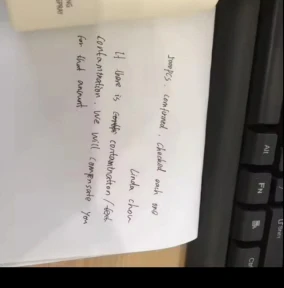 2000PCS. confirmed. checked each one
Linda chou
If there is contamination / feal
contamination, we will compensate you
for that amount
Alt
FN